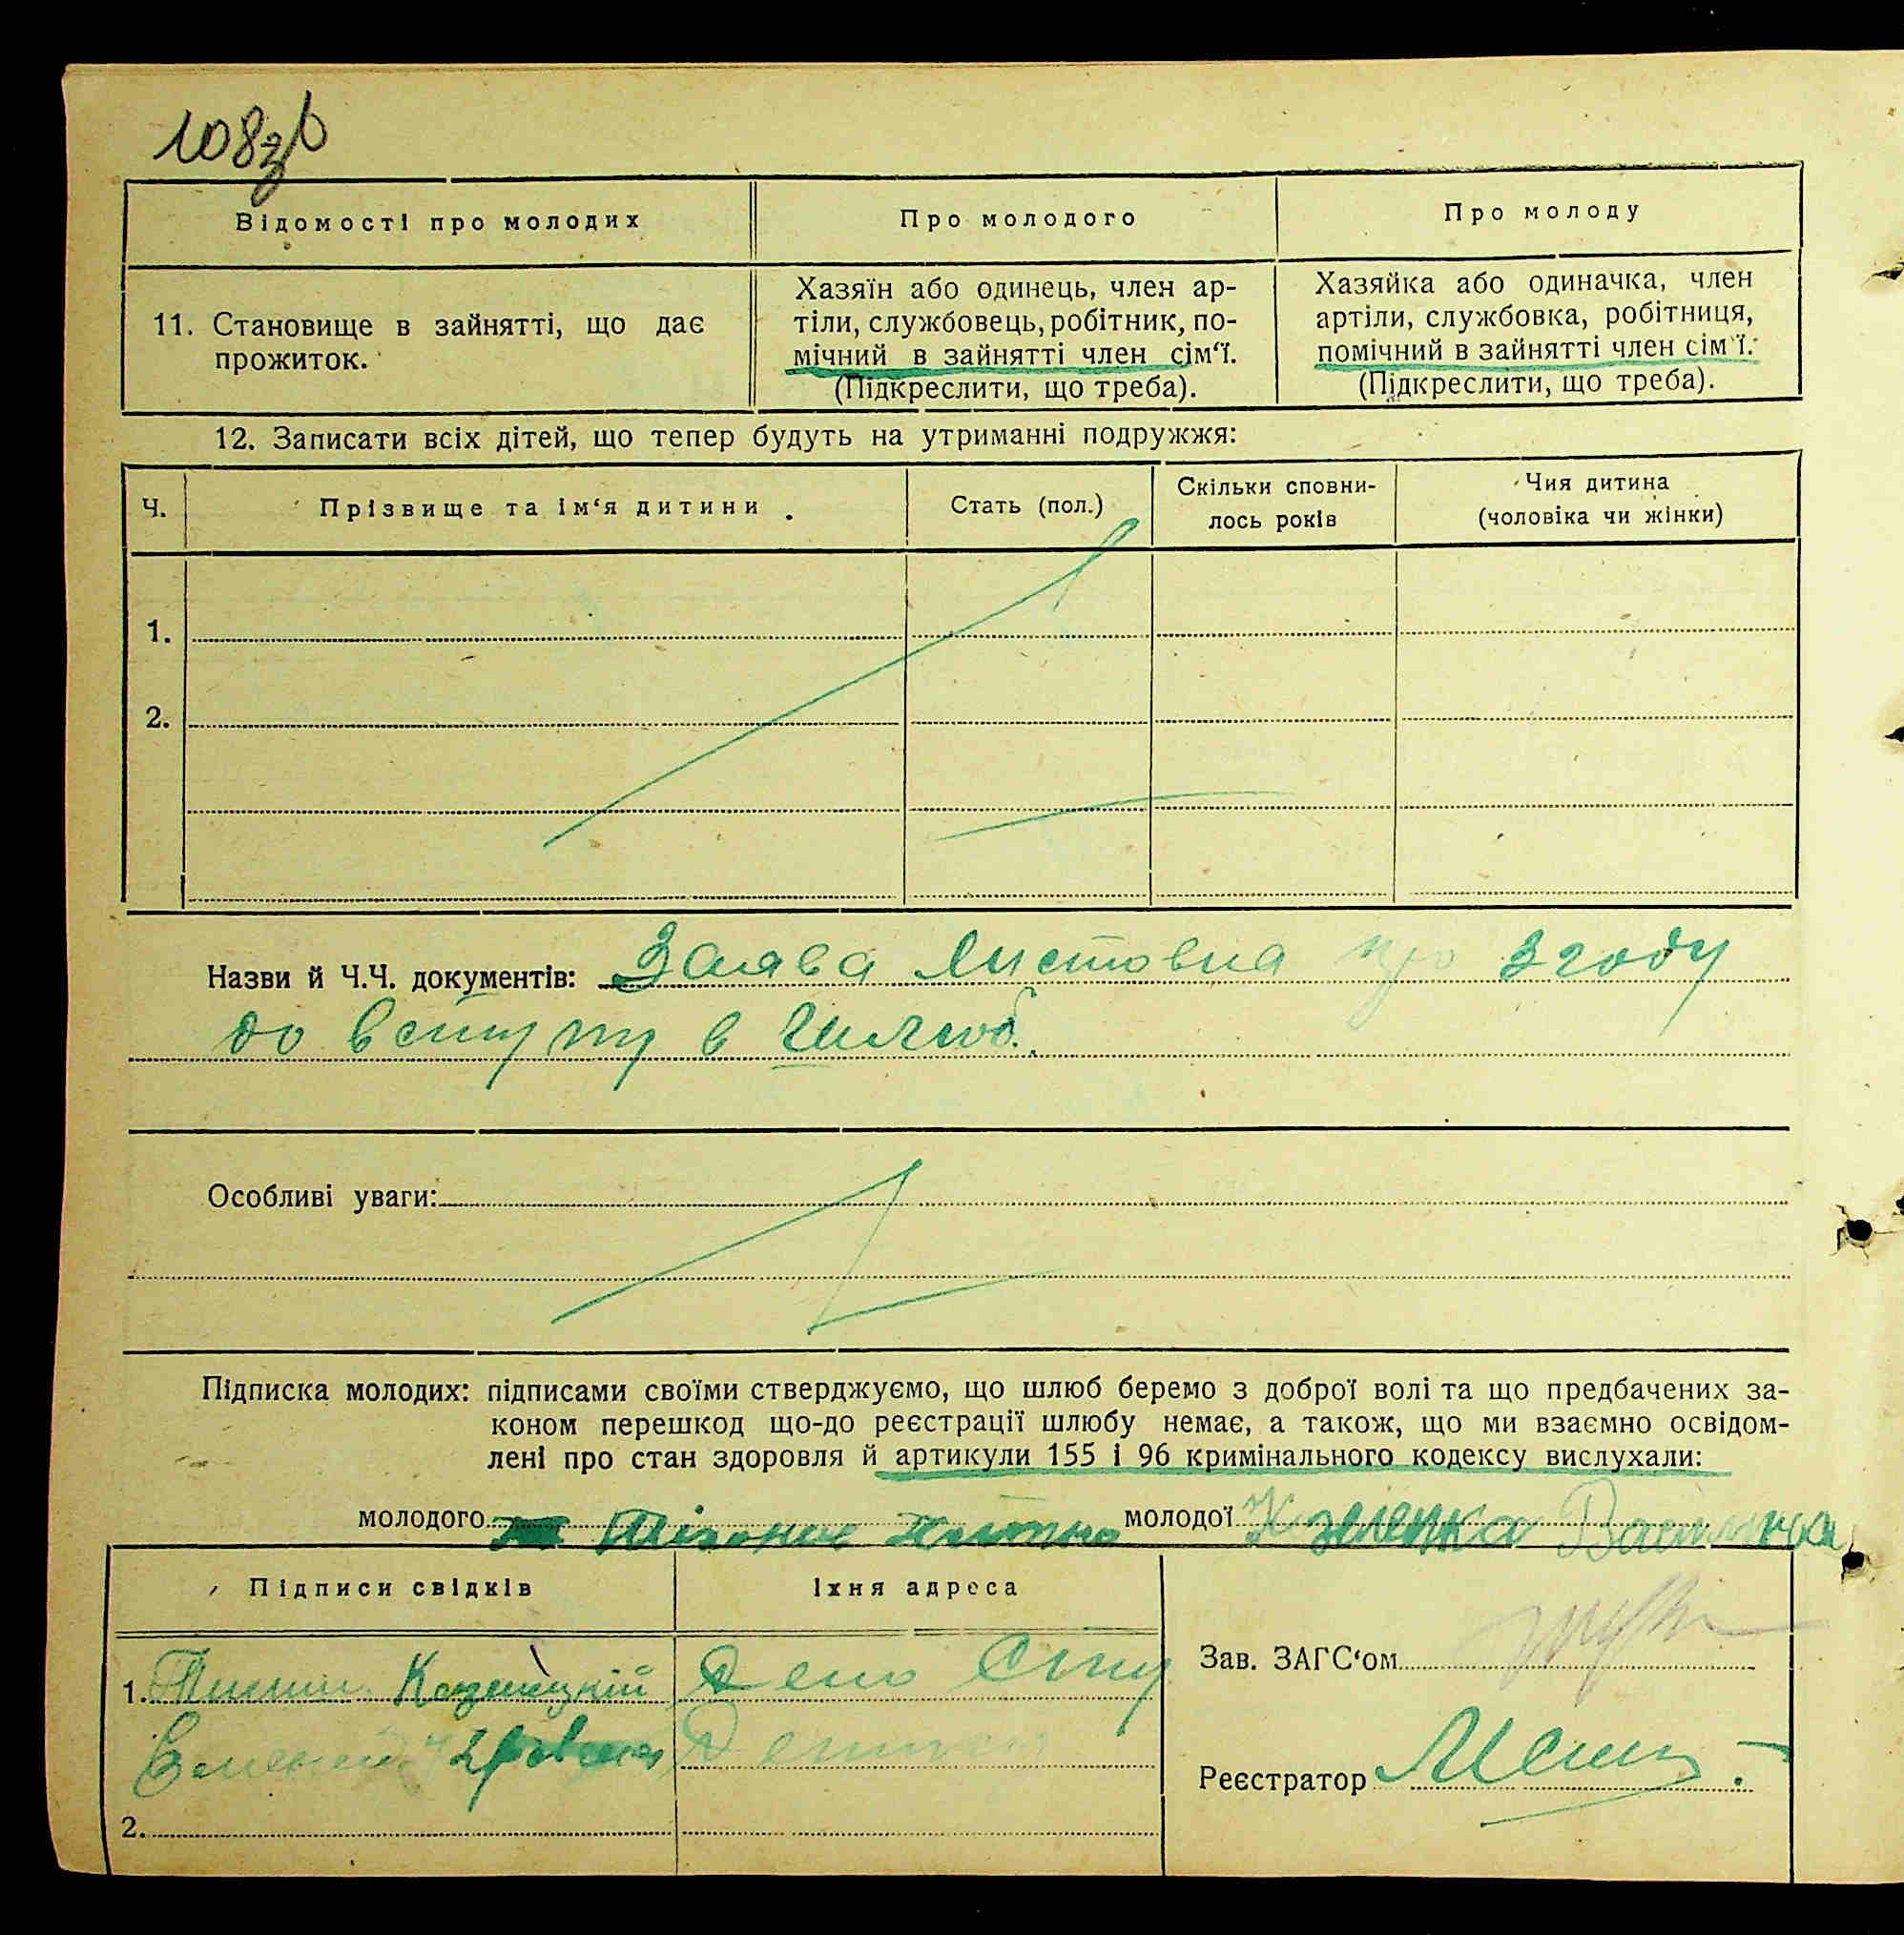 108зв
Відомості про молодих
Про молодого
Про молоду
11. Становище в зайнятті, що дає
прожиток.
Хазяїн або одинець, член ар-
тіли, службовець, робітник, по-
мічний в зайнятті член сім‘ї.
(Підкреслити, що треба).
Хазяйка або одиначка, член
артіли, службовка, робітниця,
помічний в зайнятті член сім‘ї.
(Підкреслити, що треба).
12. Записати всіх дітей, що тепер будуть на утриманні подружжя:
Ч.
Прізвище та ім‘я дитини
Стать (пол.)
Скільки сповни-
лось років
Чия дитина
(чоловіка чи жінки)
1.
2.
Назви й Ч.Ч. документів: Заява листовна про згоду
до вступу в шлюб.
Особливі уваги:
Підписка молодих: підписами своїми стверджуємо, що шлюб беремо з доброї волі та що предбачених за-
коном перешкод що-до реєстрації шлюбу немає, а також, що ми взаємно освідом-
лені про стан здоровля й артикули 155 і 96 кримінального кодексу вислухали:
молодого
молодої
Підписи свідків
Їхня адреса
1.
Депо
2.
Зав. ЗАГС‘ом
Реєстратор